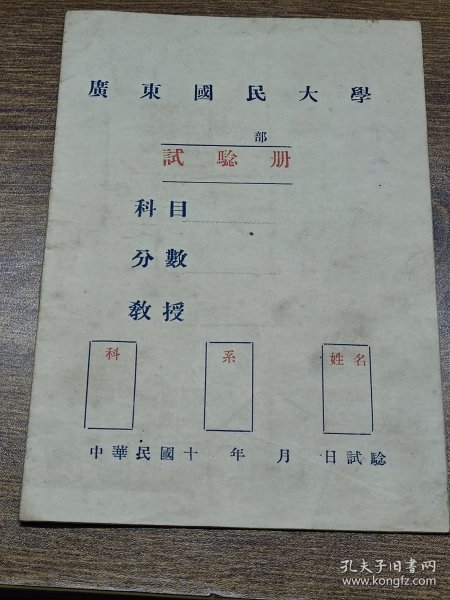 廣東國民大學
部
試驗册
科目
分數
教授
科 系 姓名
中華民國十 年 月 日試驗
孔夫子旧书网
www.kongfz.com